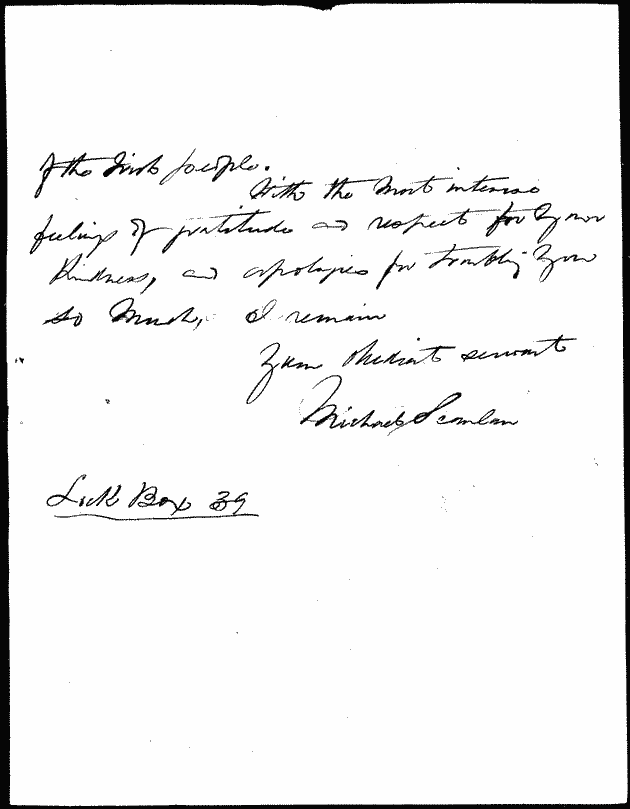 of the Irish people.
With the most intense
feelings of gratitude and respect for your
kindness, and apologies for troubling you
so much, I remain
Your obedient servant
Michael Scanlan
Lock Box 39